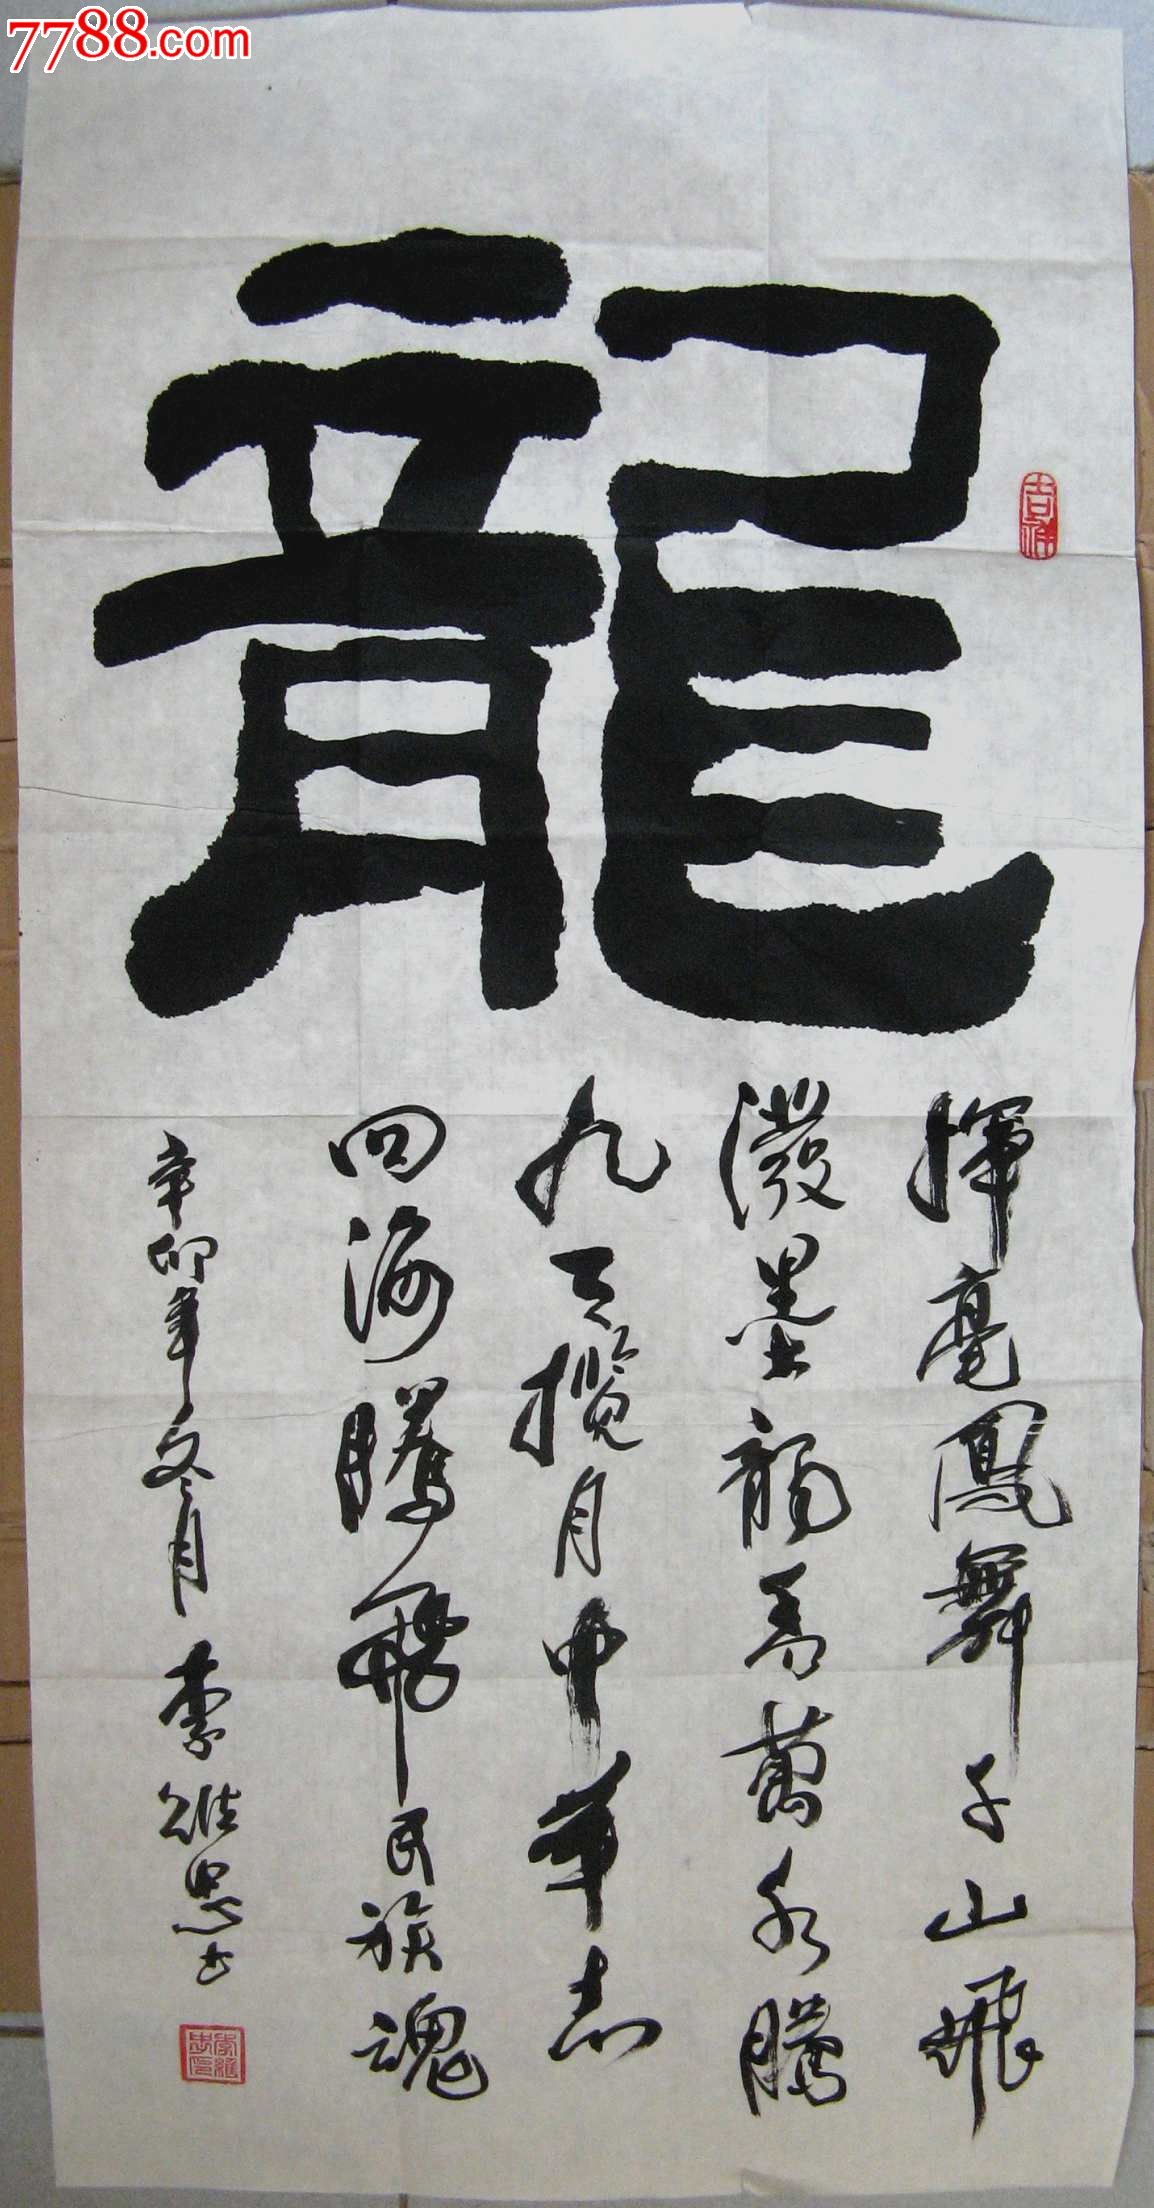 7788.com
龍
吉祥
揮毫鳳舞千山飛
潑墨龍吟萬水騰
九天攬月中華志
四海騰飛民族魂
辛卯年冬月 李維忠书
李維忠印